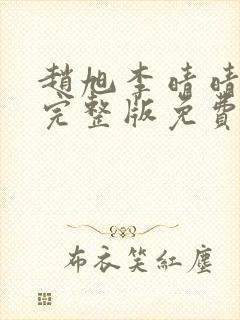 趙旭李晴晴
完整版免費
布衣笑紅塵